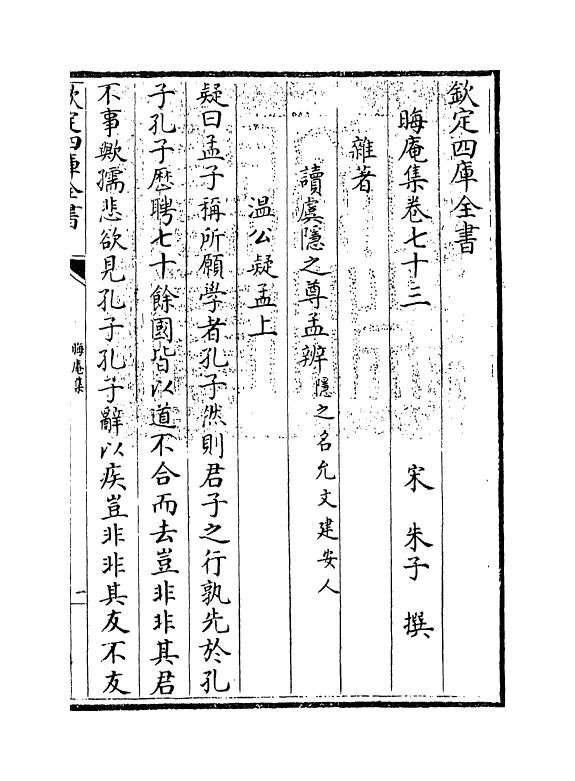 欽定四庫全書
晦庵集卷七十三
宋 朱子 撰
雜著
讀虞隱之尊孟辨隱之名允文建安人
温公疑孟上
疑曰孟子稱所願學者孔子然則君子之行孰先於孔
子孔子歴聘七十餘國皆以道不合而去豈非非其君
不事歟孺悲欲見孔子孔子辭以疾豈非非其友不友
欽定四庫全書
晦庵集
一